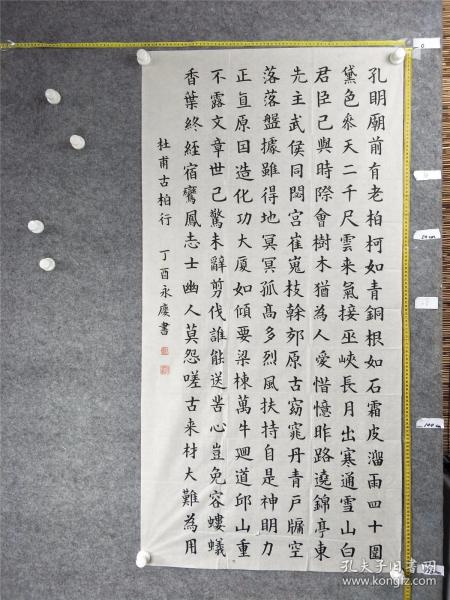 孔眀廟前有老柏柯如青銅根如石霜皮溜雨四十圍
黛色叅天二千尺雲来氣接巫峽長月出寒通雪山白
君臣已與時際會樹木猶為人愛惜憶昨路遶錦亭東
先主武侯同閟宮崔嵬枝幹郊原古窈窕丹青戶牖空
落落盤據雖得地冥冥孤髙多烈風扶持自是神眀力
正直原因造化功大厦如傾要梁棟萬牛廻道邱山重
不露文章世已驚未辭剪伐誰能送苦心豈免容螻蟻
香葉終經宿鸞鳳志士幽人莫怨嗟古来材大難為用
杜甫古柏行 丁酉永慶書
0
50cm
100cm
孔夫子旧书网
kongfz.com